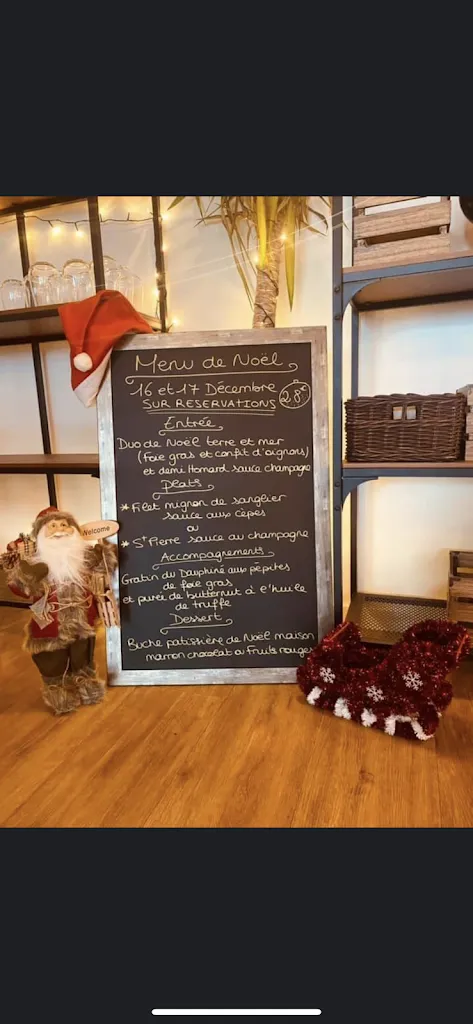 Menu de Noël
16 et 17 Décembre
28€
SUR RESERVATIONS
Entrée
Duo de Noël terre et mer
(foie gras et confit d'oignons)
et demi Homard sauce champagne
Plats
* Filet mignon de sanglier
sauce aux cèpes
ou
* St Pierre sauce au champagne
Accompagnements
Gratin du Dauphiné aux pépites
de foie gras
et purée de butternut à l'huile
de truffe
Dessert
Buche patissière de Noël maison
marron chocolat ou fruits rouges
Welcome